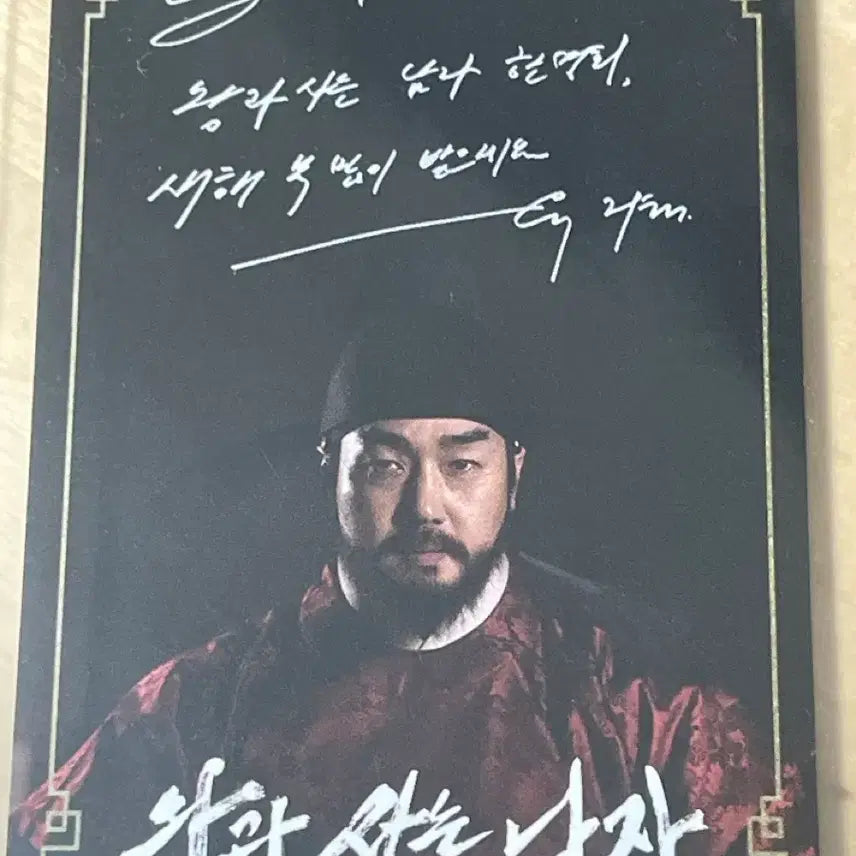 왕과 사는 남자 한명회,
새해 복 많이 받으세요
왕과 사는 남자